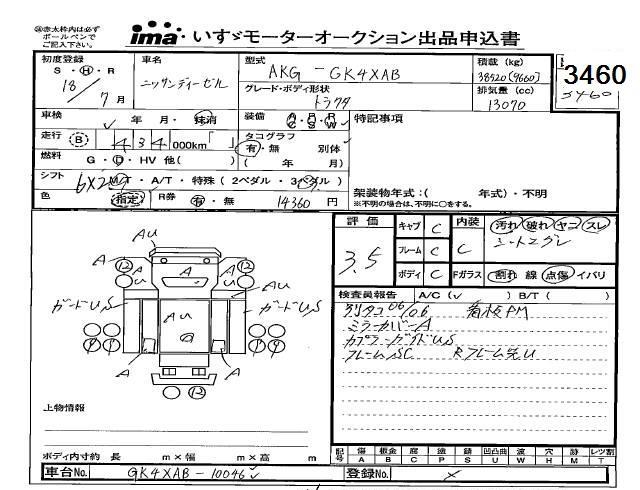 ㊟赤太枠内は必ず
ボールペンで
ご記入下さい。
ima・いすゞモーターオークション出品申込書
初度登録
S・H・R
18/7月
車名
ニッサンディーゼル
型式
AKG－GK4XAB
積載 (kg)
38520(9660)
3460
3460
グレード・ボディ形状
トラクタ
排気量 (cc)
13070
車検
年 月・抹消
装備 A P R
C S W
特記事項
走行 (B) 434 000km
タコグラフ
有・無 別体
( 年 月)
燃料
G・D・HV 他( )
シフト
6X2 MT・A/T・特殊(2ペダル・3ペダル)
架装物年式:( 年式)・不明
※不明の場合は、不明に〇をする。
色
指定
R券
有・無 14360円
評価
3.5
キャブ C
フレーム C
ボディ C
内装
C
汚れ・破れ・ヤコ・スレ
シートコゲレ
Fガラス
割れ 線 点傷 イバリ
検査員報告 A/C(✓ ) B/T( )
06/06 看板PM
ミラーカバーA
カプラーガイドUS
フレームSC Rフレーム先U
AU
A 12 A A 12
U U
AU A
ガードUS AU ガードUS
A A
A
12
上物情報
ボディ内寸約 長 m×幅 m×高 m
記号 傷 板金 腐 塗 錆 凹凸曲 波 穴 跡 レンズ割
A B C P S U W H M T
車台No.
GK4XAB-10046
登録No.
×